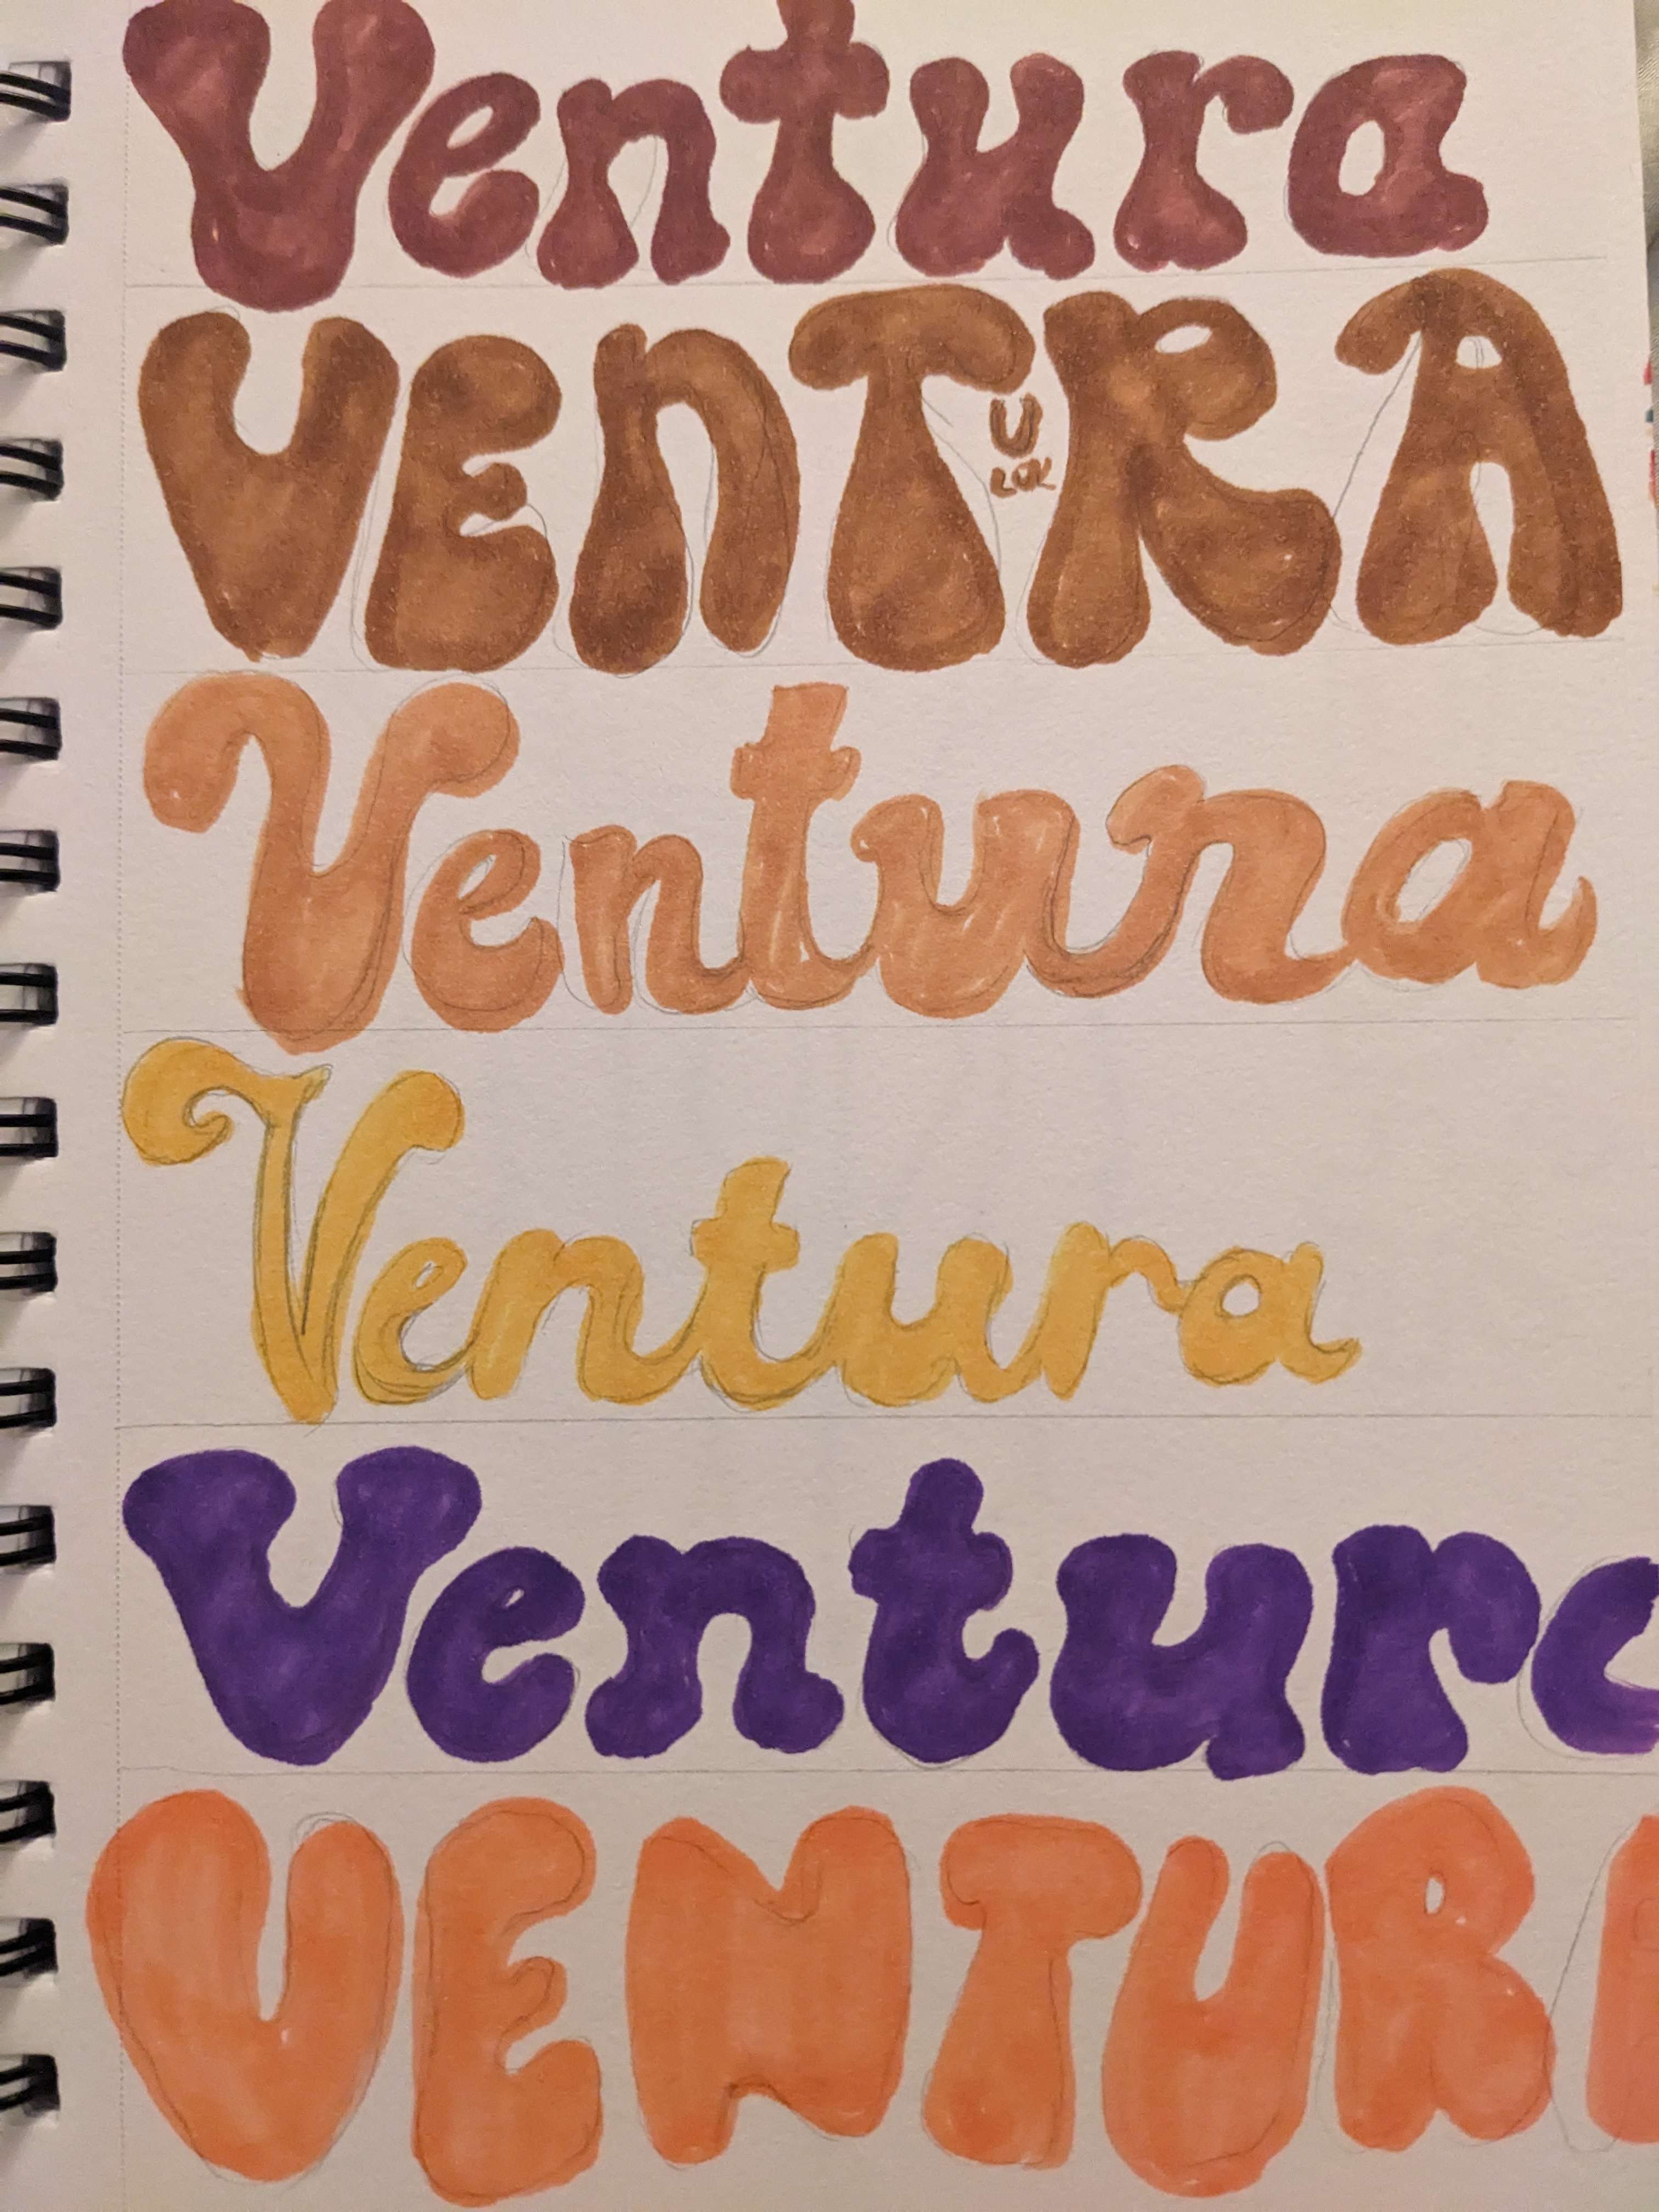 Ventura
VEnTRA
U
LOL
Ventura
Ventura
Ventura
VENTURA